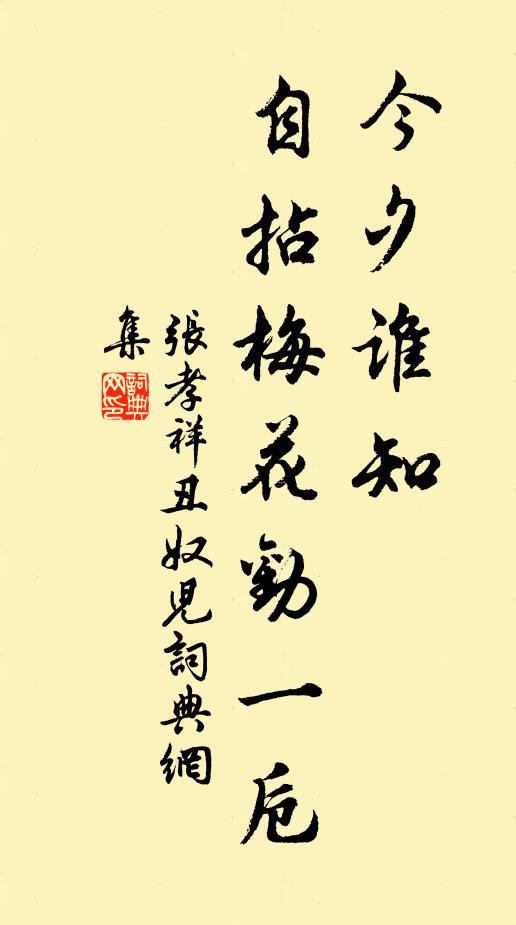 今夕誰知
自拈梅花勸一卮
張孝祥丑奴兒詞典網
集
詞典
网印